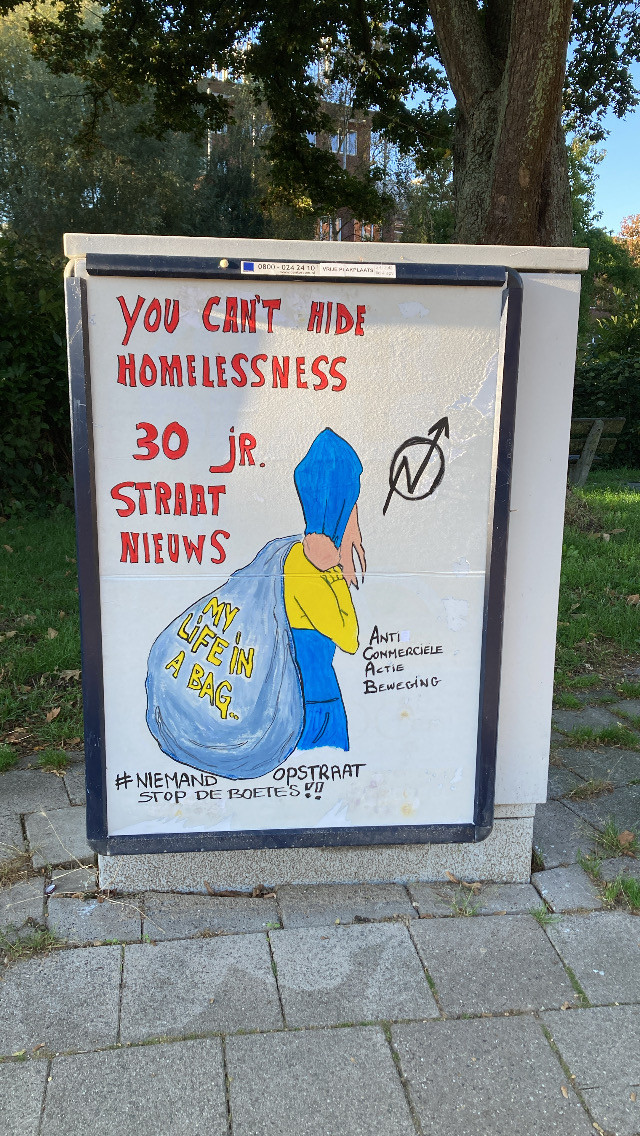 0800 - 024 24 10 VRIJE PLAKPLAATS
YOU CAN'T HIDE
HOMELESSNESS
30 jR.
STRAAT
NIEUWS
MY
LiFE iN
A BAG..
ANTI
COMMERCIËLE
ACTIE
BEWEGING
#NIEMAND OPSTRAAT
STOP DE BOETES !!